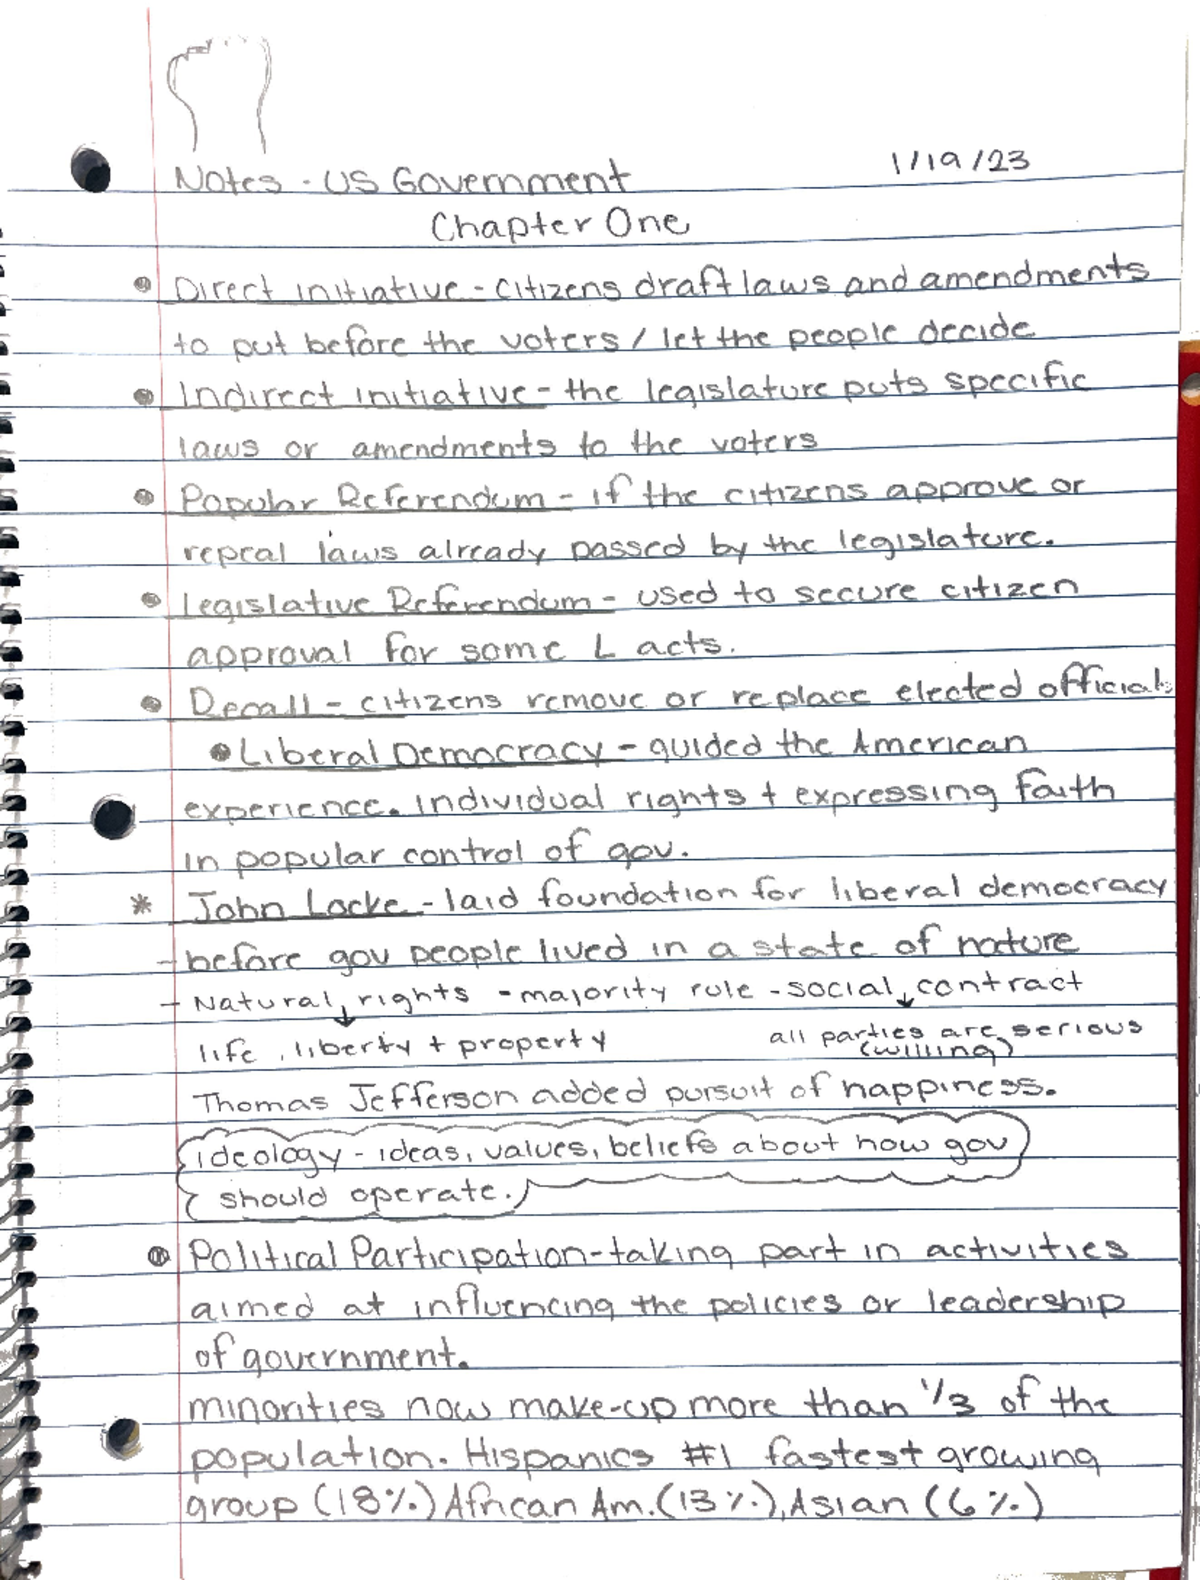 1/19/23
Notes - US Government
Chapter One
Direct initiative - citizens draft laws and amendments
to put before the voters / let the people decide
Indirect initiative - the legislature puts specific
laws or amendments to the voters
Popular Referendum - if the citizens approve or
repeal laws already passed by the legislature.
Legislative Referendum - used to secure citizen
approval for some L acts.
Recall - citizens remove or replace elected officials
Liberal Democracy - guided the American
experience. Individual rights + expressing faith
in popular control of gov.
* John Locke - laid foundation for liberal democracy
- before gov people lived in a state of nature
- Natural rights - majority rule - social contract
life, liberty + property
all parties are serious
(willing)
Thomas Jefferson added pursuit of happiness.
ideology - ideas, values, beliefs about how gov
should operate.
Political Participation - taking part in activities
aimed at influencing the policies or leadership
of government.
minorities now make-up more than 1/3 of the
population. Hispanics #1 fastest growing
group (18%) African Am. (13%), Asian (6%)